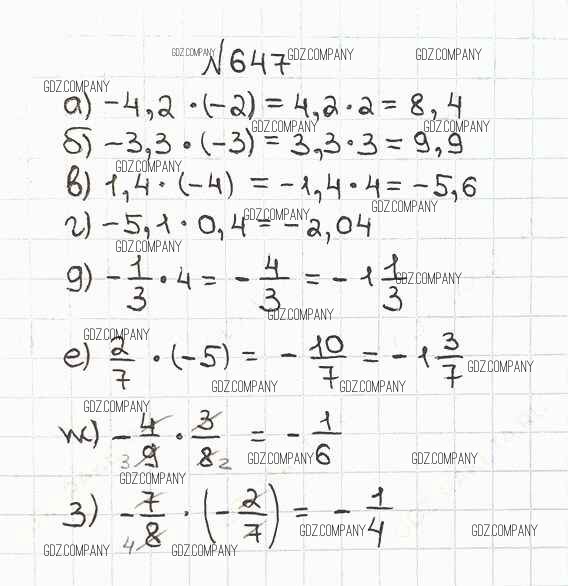 GDZ.COMPANY №647 GDZ.COMPANY GDZ.COMPANY
GDZ.COMPANY
а) -4,2 · (-2) = 4,2 · 2 = 8,4
GDZ.COMPANY GDZ.COMPANY
б) -3,3 · (-3) = 3,3 · 3 = 9,9
GDZ.COMPANY
в) 1,4 · (-4) = -1,4 · 4 = -5,6
GDZ.COMPANY GDZ.COMPANY
г) -5,1 · 0,4 = -2,04
GDZ.COMPANY
д) - 1/3 · 4 = - 4/3 = - 1 1/3 GDZ.COMPANY
GDZ.COMPANY
GDZ.COMPANY
е) 2/7 · (-5) = - 10/7 = - 1 3/7 GDZ.COMPANY
GDZ.COMPANY GDZ.COMPANY
GDZ.COMPANY
ж) - 4/9 3 · 3/8 2 = - 1/6
GDZ.COMPANY GDZ.COMPANY
GDZ.COMPANY
з) - 7/8 4 · (- 2/7) = - 1/4
GDZ.COMPANY GDZ.COMPANY
GDZ.COMPANY GDZ.COMPANY